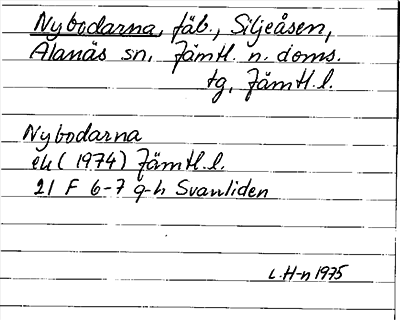 Nybodarna, fäb., Siljeåsen,
Alanäs sn, Jämtl. n. doms.
tg, Jämtl.l.
Nybodarna
ek (1974) Jämtl.l.
21 F 6-7 g-h Svanliden
L.H-n 1975